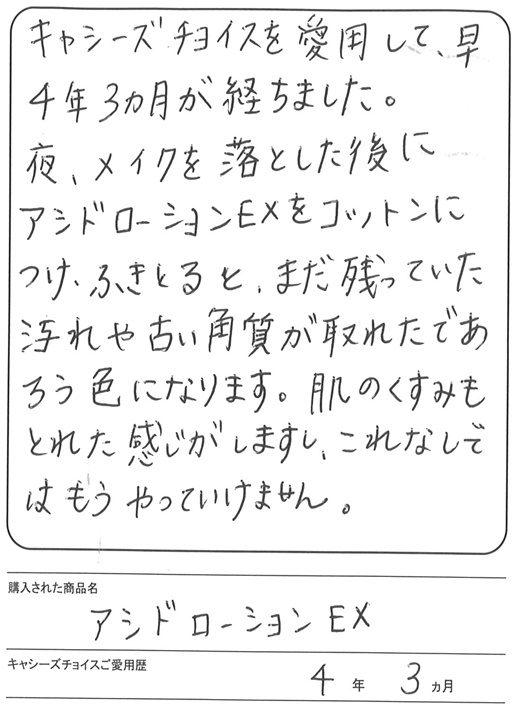 キャシーズチョイスを愛用して、早
4年3カ月が経ちました。
夜、メイクを落とした後に
アシドローションEXをコットンに
つけ、ふきとると、まだ残っていた
汚れや古い角質が取れたであ
ろう色になります。肌のくすみも
とれた感じがしますし、これなしで
はもうやっていけません。
購入された商品名
アシドローションEX
キャシーズチョイスご愛用歴
4年 3カ月